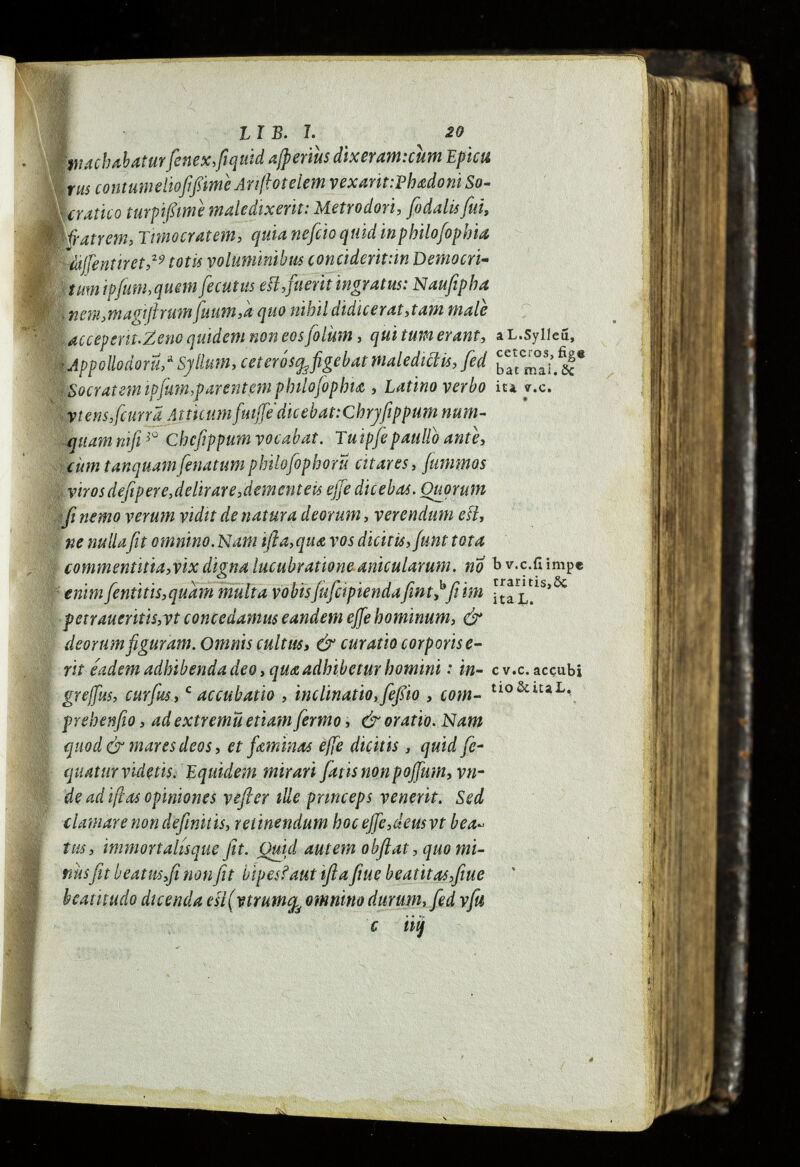 LIB. I. 20
machabatur senex, siquid asperius dixeram: cùm Epicu
rus contumeliosißimè Aristotelem vexarit: Phædoni So-
cratico turpißimè maledixerit: Metrodori, sodalis sui,
fratrem, Timocratem, quia nescio quid in philosophia
dissentiret,²⁹ totis voluminibus conciderit: in Democri-
tum ipsum, quem secutus est, fuerit ingratus: Nausipha
nem, magistrum suum, à quo nihil didicerat, tam malè
acceperit. Zeno quidem non eos solùm, qui tum erant,
Appollodorũ,ᵃ Syllum, ceterósq; figebat maledictis, sed
Socratem ipsum, parentem philosophiæ, Latino verbo
vtens, scurrã Atticum fuisse dicebat: Chrysippum num-
quam nisi ³⁰ Chesippum vocabat. Tu ipse paullò antè,
cùm tanquam senatum philosophorũ citares, summos
viros desipere, delirare, dementeis esse dicebas. Quorum
si nemo verum vidit de natura deorum, verendum est,
ne nulla sit omnino. Nam ista, quæ vos dicitis, sunt tota
commentitia, vix digna lucubratione anicularum. nõ
enim sentitis, quàm multa vobis suscipienda sint,ᵇ si im
petraueritis, vt concedamus eandem esse hominum, &
deorum figuram. Omnis cultus, & curatio corporis e-
rit eadem adhibenda deo, quæ adhibetur homini: in-
gressus, cursus, ᶜ accubatio, inclinatio, seßio, com-
prehensio, ad extremũ etiam sermo, & oratio. Nam
quod & mares deos, et fæminas esse dicitis, quid se-
quatur videtis. Equidem mirari satis non possum, vn-
de ad istas opiniones vester ille princeps venerit. Sed
clamare non definitis, retinendum hoc esse, deus vt bea-
tus, immortalisque sit. Quid autem obstat, quo mi-
nùs sit beatus, si non sit bipes? aut ista siue beatitas, siue
beatitudo dicenda est (vtrumq; omnino durum, sed vsu
c iiij
a L. Sylleũ,
ceteros, fige
bat mal. &
ita v.c.
b v.c. si impe
traritis, &
ita L.
c v.c. accubi
tio & ita L.